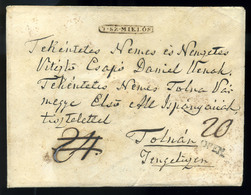 T.SZ.MIKLÓS
Tekéntetes Nemes és Nemzetes
Vitézlő Csapó Dániel Urnak
Tekéntetes Nemes Tolna Vár
megye Első Al Ispánjának
tisztelettel
24. Tolnán 20
Tengeliczen